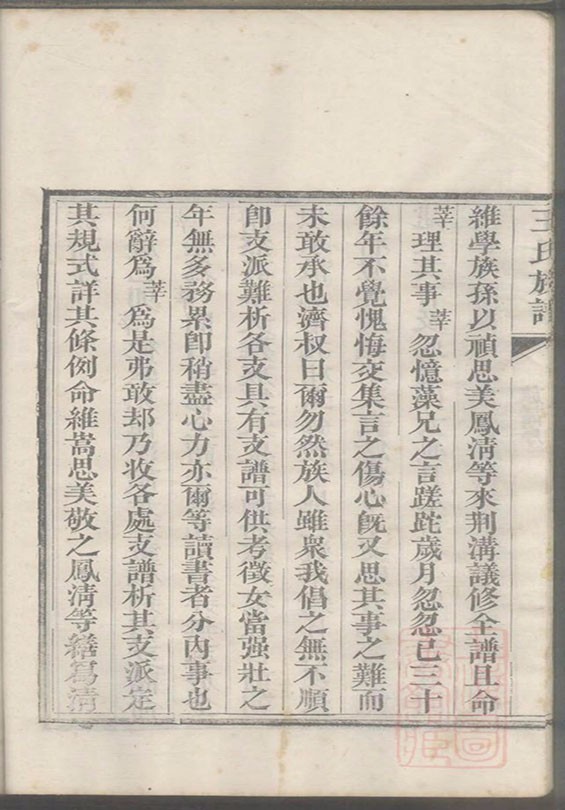 王氏族譜
維學族孫以禎思美鳳清等來荆溝議修全譜且命
莘理其事莘忽憶藻兄之言蹉跎歲月忽忽已三十
餘年不覺愧悔交集言之傷心既又思其事之難而
未敢承也濟叔曰爾勿然族人雖衆我倡之無不順
卽支派難析各支具有支譜可供考徵女當强壯之
年無多務累卽稍盡心力亦爾等讀書者分內事也
何辭爲莘爲是弗敢却乃收各處支譜析其支派定
其規式詳其條例命維嵩思美敬之鳳清等繕寫清